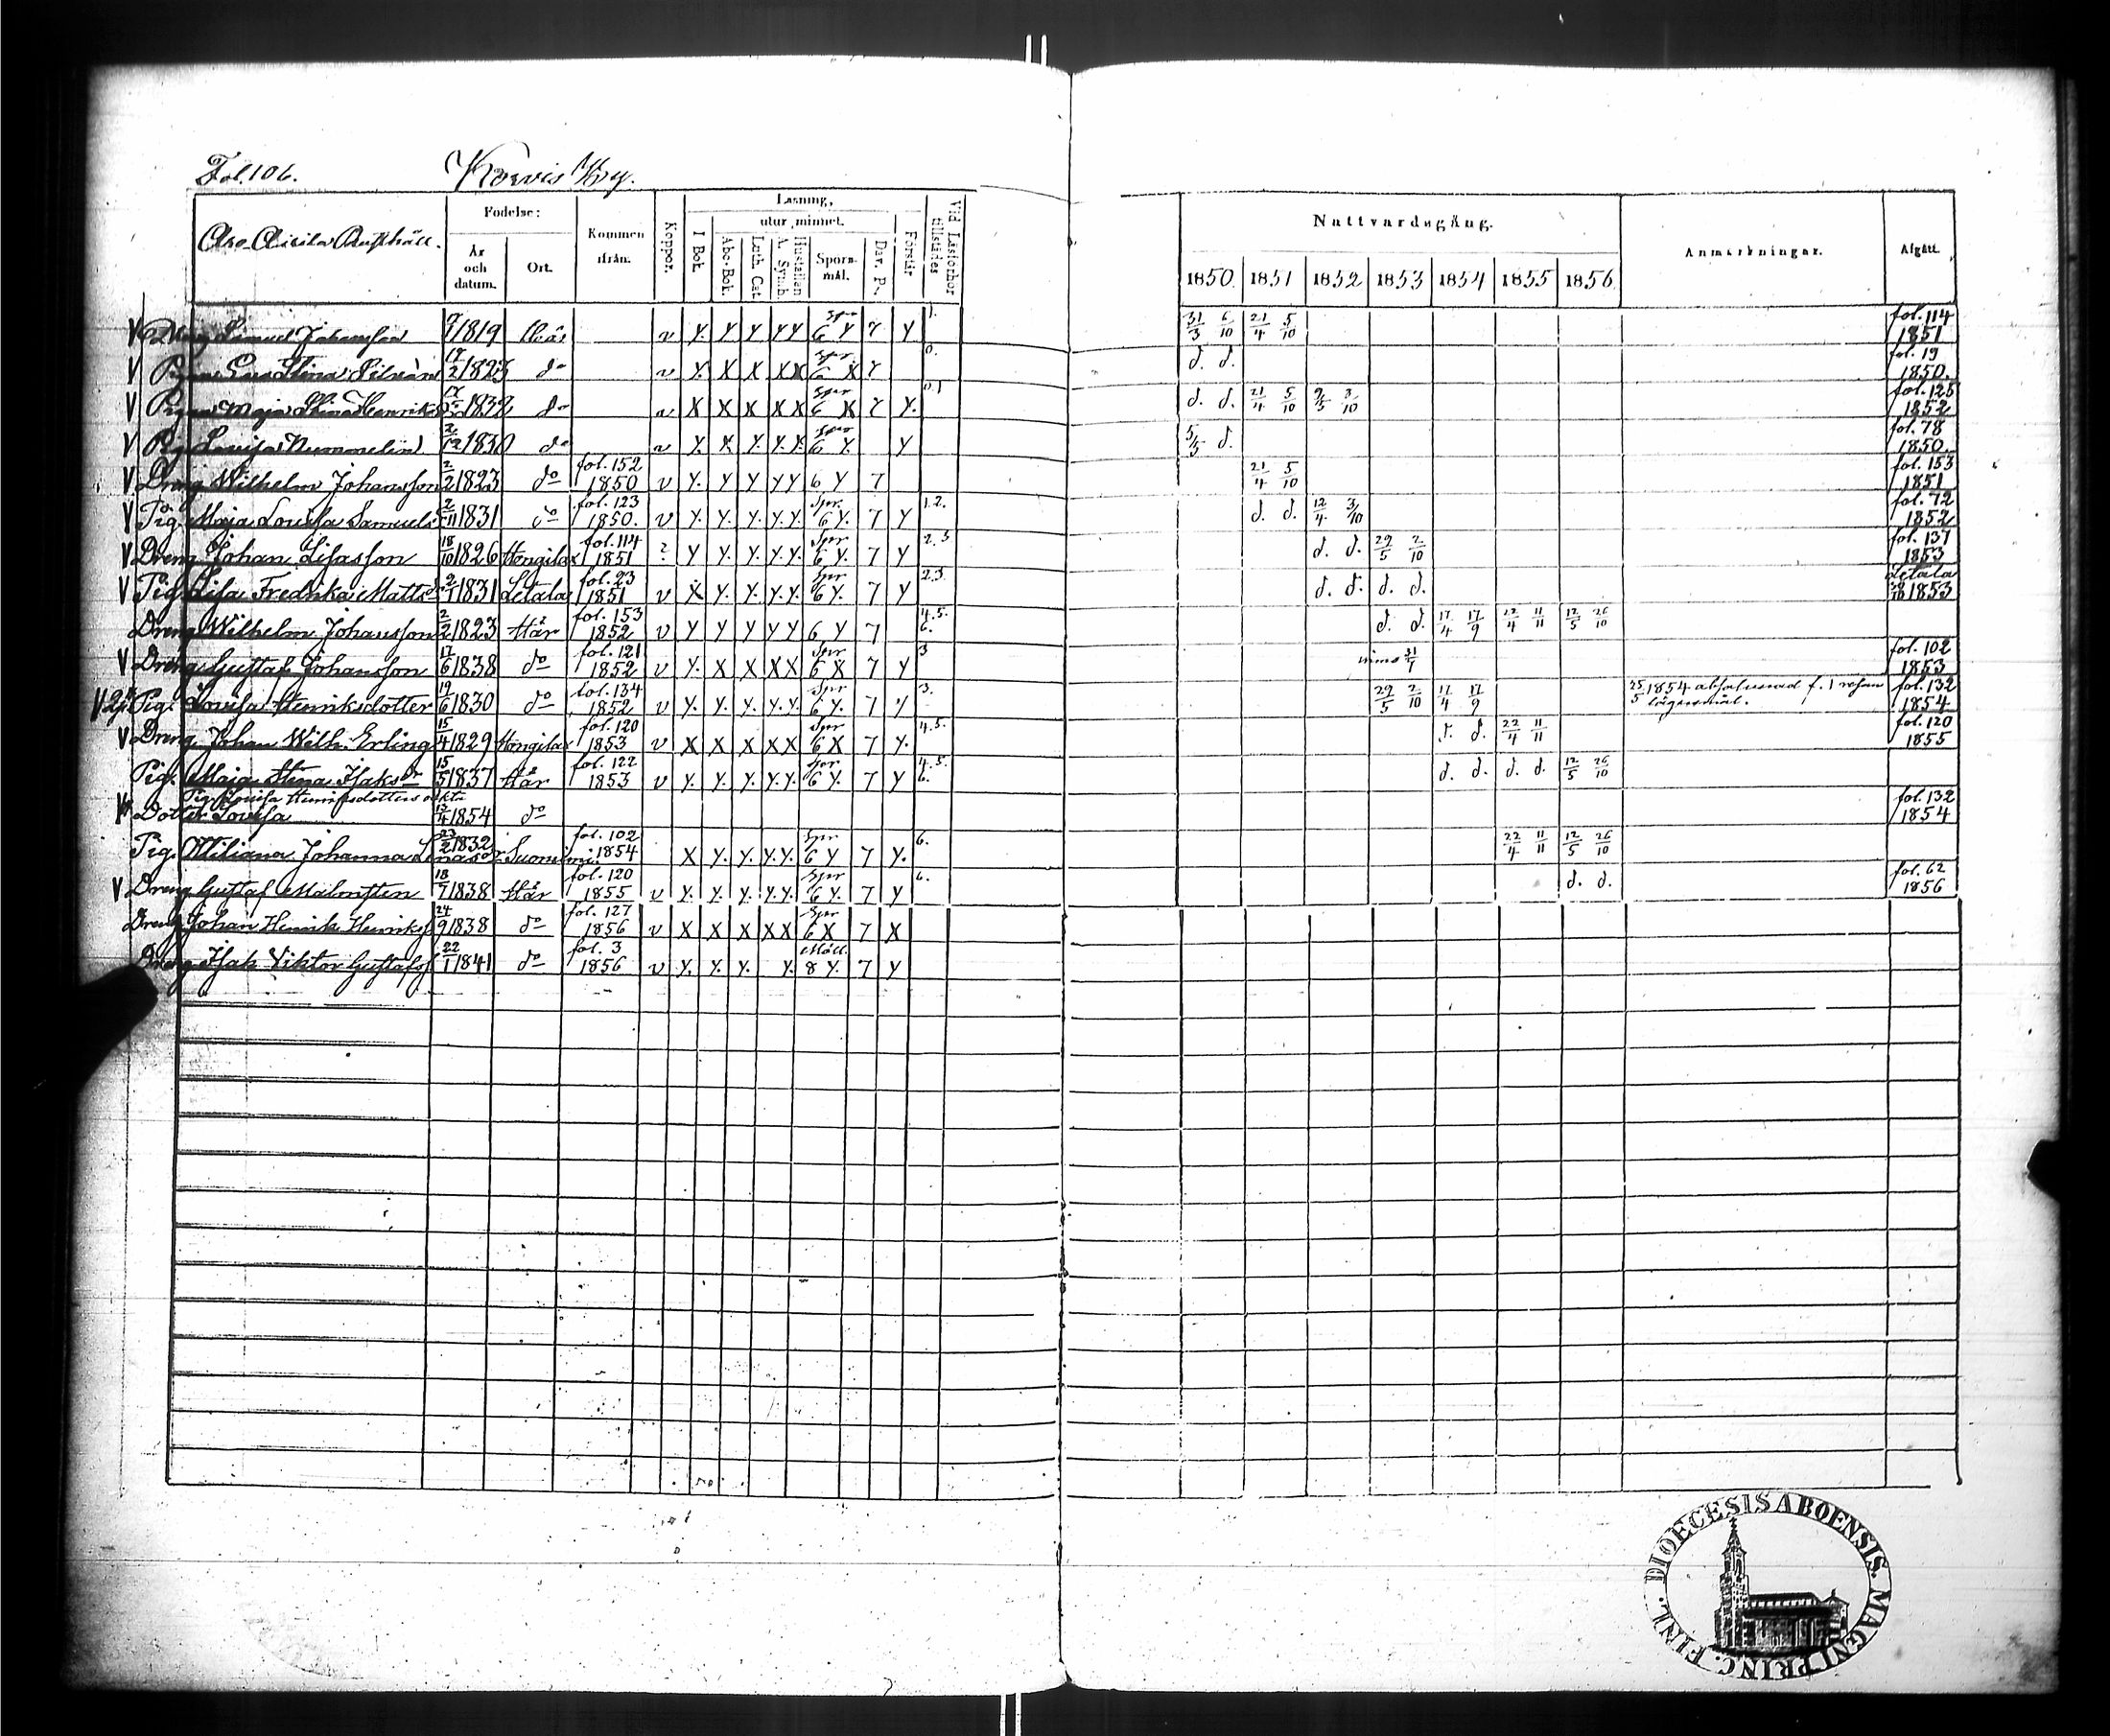 Fol. 106. Korvis By.
Födelse: Läsning, Nattvardsgång.
År och datum. Ort. Kommen ifrån. Koppor. I Bok. utur minnet. Abc-Bok. Luth. Cat. Hustaflan A. Symb. Spörsmål. Dav. Ps. Förstår Vid Läsförhör tillstädes 1850. 1851 1852 1853 1854 1855 1856 Anmärkningar. Afgått.
V Dreng Samuel Johansson 1819 v y. y y y y Spr 6 y 7 y 1. 31/3 6/10 21/4 5/10 fol. 114 1851
V Pigan Stina 1823 do v y. x x x x Spr 6 x 7 0. d. d. fol. 19 1850.
V Pigan Maja Stina Henriks 1832 do v x x x x x Spr 6 x 7 y. 0.1 d. d. 21/4 5/10 9/5 3/10 fol. 125 1852
V Pig. Lovisa Nummelin 1830 do v y. x y. y. x. Spr 6 y. y 5/5 d. fol. 78 1850.
V Dreng Wilhelm Johansson 2/2 1823 do fol. 152 1850 v y. y y y y 6 y 7 21/4 5/10 fol. 153 1851
V Pig. Maja Lovisa Samuels 2/11 1831 do fol. 123 1850. v y. y. y. y. y. Spr 6 y. 7 y 1.2. d. d. 12/4 3/10 fol. 72 1852
V Dreng Johan 18/10 1826 fol. 114 1851 ? y y. y. y. y. Spr 6 y. 7 y 2.3 d. d. 29/5 2/10 fol. 137 1853
V Pig. Lisa Fredrika Matts 2/1 1831 Letala fol. 23 1851 v x y. y. y. y. Spr 6 y. 7 y 2.3. d. d. d. d. Letala 30/10 1853
Dreng Wilhelm Johansson 2/2 1823 Här fol. 153 1852 v y y y y y 6 y 7 4.5. 6. d. d. 17/4 17/9 12/4 11/11 12/5 26/10
V Dreng Gustaf Johansson 17/6 1838 do fol. 121 1852 v y. x x x x Spr 6 x 7 y 3 31/7 fol. 102 1853
V Pig. Lovisa Henriksdotter 19/6 1830 do fol. 134 1852 v y. y. y. y. y. Spr 6 y. 7 y 3. 29/5 2/10 17/4 17/9 25/5 1854 absolverad f. 1 resan lägersmål. fol. 132 1854
V Dreng Johan Wilh. Erling 15/4 1829 fol. 120 1853 v x x x x x Spr 6 x 7 y. 4.5. d. d. 22/4 11/11 fol. 120 1855
Pig. Maja Stina Isaksdr 15/5 1837 Här fol. 122 1853 v y. y. y. y. y. Spr 6 y. 7 y 4.5. 6. d. d. d. d. 12/5 26/10
Pig. Lovisa Henriksdotters oäkta
Dotter Lovisa 13/4 1854 do fol. 132 1854
Pig. Miliana Johanna 23/2 1832 fol. 102 1854 x y. y. y. y. Spr 6 y 7 y. 6. 22/4 11/11 12/5 26/10
V Dreng Gustaf Malmsten 18/7 1838 Här fol. 120 1855 v y. y. y. y. y. Spr 6 y. 7 y 6. d. d. fol. 62 1856
Dreng Johan Henrik Henriks 24/9 1838 do fol. 127 1856 v x x x x x Spr 6 x 7 x
Dreng Isak Viktor Gustafss 22/1 1841 do fol. 3 1856 v y. y. y. y. Möll. 8 y. 7 y
DIOECESIS ABOENSIS. MAGNI PRINC. FINL.